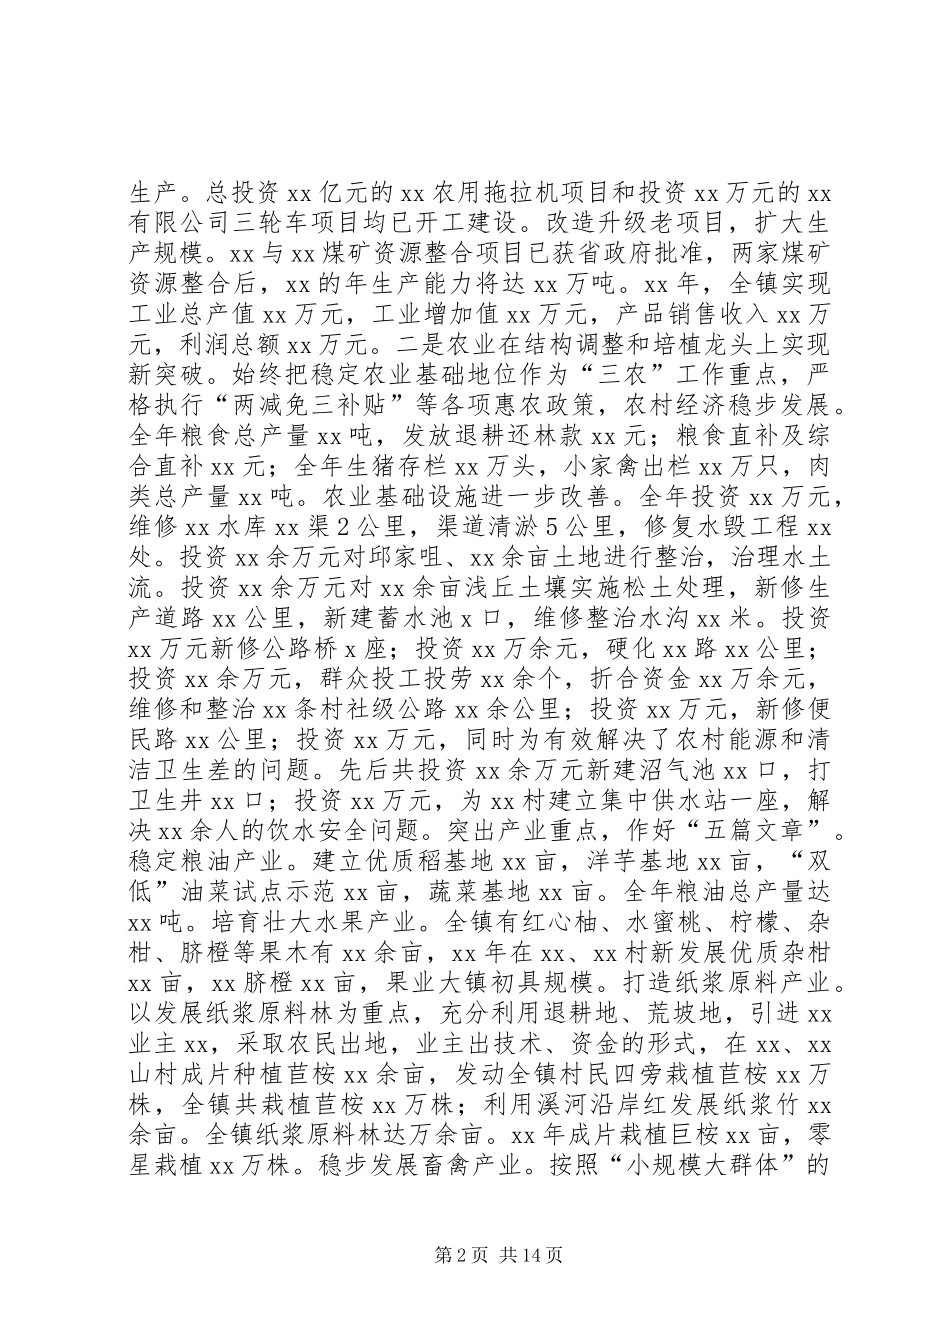 生产。总投资 xx 亿元的 xx 农用拖拉机项目和投资 xx 万元的 xx
有限公司三轮车项目均已开工建设。改造升级老项目，扩大生
产规模。xx 与 xx 煤矿资源整合项目已获省政府批准，两家煤矿
资源整合后，xx 的年生产能力将达 xx 万吨。xx 年，全镇实现
工业总产值 xx 万元，工业增加值 xx 万元，产品销售收入 xx 万
元，利润总额 xx 万元。二是农业在结构调整和培植龙头上实现
新突破。始终把稳定农业基础地位作为“三农”工作重点，严
格执行“两减免三补贴”等各项惠农政策，农村经济稳步发展。
全年粮食总产量 xx 吨，发放退耕还林款 xx 元；粮食直补及综
合直补 xx 元；全年生猪存栏 xx 万头，小家禽出栏 xx 万只，肉
类总产量 xx 吨。农业基础设施进一步改善。全年投资 xx 万元，
维修 xx 水库 xx 渠 2 公里，渠道清淤 5 公里，修复水毁工程 xx
处。投资 xx 余万元对邱家咀、xx 余亩土地进行整治，治理水土
流。投资 xx 余万元对 xx 余亩浅丘土壤实施松土处理，新修生
产道路 xx 公里，新建蓄水池 x 口，维修整治水沟 xx 米。投资
xx 万元新修公路桥 x 座；投资 xx 万余元，硬化 xx 路 xx 公里；
投资 xx 余万元，群众投工投劳 xx 余个，折合资金 xx 万余元，
维修和整治 xx 条村社级公路 xx 余公里；投资 xx 万元，新修便
民路 xx 公里；投资 xx 万元，同时为有效解决了农村能源和清
洁卫生差的问题。先后共投资 xx 余万元新建沼气池 xx 口，打
卫生井 xx 口；投资 xx 万元，为 xx 村建立集中供水站一座，解
决 xx 余人的饮水安全问题。突出产业重点，作好“五篇文章”。
稳定粮油产业。建立优质稻基地 xx 亩，洋芋基地 xx 亩，“双
低”油菜试点示范 xx 亩，蔬菜基地 xx 亩。全年粮油总产量达
xx 吨。培育壮大水果产业。全镇有红心柚、水蜜桃、柠檬、杂
柑、脐橙等果木有 xx 余亩，xx 年在 xx、xx 村新发展优质杂柑
xx 亩，xx 脐橙 xx 亩，果业大镇初具规模。打造纸浆原料产业。
以发展纸浆原料林为重点，充分利用退耕地、荒坡地，引进 xx
业主 xx，采取农民出地，业主出技术、资金的形式，在 xx、xx
山村成片种植苣桉 xx 余亩，发动全镇村民四旁栽植苣桉 xx 万
株，全镇共栽植苣桉 xx 万株；利用溪河沿岸红发展纸浆竹 xx
余亩。全镇纸浆原料林达万余亩。xx 年成片栽植巨桉 xx 亩，零
星栽植 xx 万株。稳步发展畜禽产业。按照“小规模大群体”的
第 2 页 共 14 页